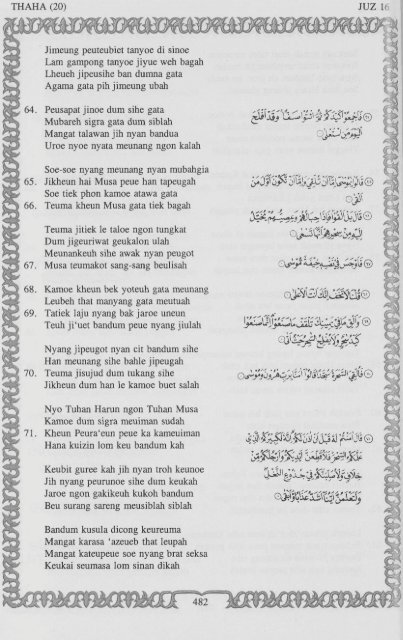 THAHA (20)
JUZ 16
Jimeung peuteubiet tanyoe di sinoe
Lam gampong tanyoe jiyue weh bagah
Lheueh jipeusihe ban dumna gata
Agama gata pih jimeung ubah
64. Peusapat jinoe dum sihe gata
Mubareh sigra gata dum siblah
Mangat talawan jih nyan bandua
Uroe nyoe nyata meunang ngon kalah
Soe-soe nyang meunang nyan mubahgia
65. Jikheun hai Musa peue han tapeugah
Soe tiek phon kamoe atawa gata
66. Teuma kheun Musa gata tiek bagah
Teuma jitiek le taloe ngon tungkat
Dum jigeuriwat geukalon ulah
Meunankeuh sihe awak nyan peugot
67. Musa teumakot sang-sang beulisah
68. Kamoe kheun bek yoteuh gata meunang
Leubeh that manyang gata meutuah
69. Tatiek laju nyang bak jaroe uneun
Teuh ji'uet bandum peue nyang jiulah
Nyang jipeugot nyan cit bandum sihe
Han meunang sihe bahle jipeugah
70. Teuma jisujud dum tukang sihe
Jikheun dum han le kamoe buet salah
Nyo Tuhan Harun ngon Tuhan Musa
Kamoe dum sigra meuiman sudah
71. Kheun Peura'eun peue ka kameuiman
Hana kuizin lom keu bandum kah
Keubit guree kah jih nyan troh keunoe
Jih nyang peurunoe sihe dum keukah
Jaroe ngon gakikeuh kukoh bandum
Beu surang sareng meusiblah siblah
Bandum kusula dicong keureuma
Mangat karasa 'azeueb that leupah
Mangat kateupeue soe nyang brat seksa
Keukai seumasa lom sinan dikah
فَأَجْمِعُوا كَيْدَكُمْ ثُمَّ ائْتُوا صَفًّا وَقَدْ أَفْلَحَ
الْيَوْمَ مَنِ اسْتَعْلَى
قَالُوا يَمُوسَى إِمَّا أَنْ تُلْقِيَ وَإِمَّا أَنْ نَكُونَ أَوَّلَ مَنْ
أَلْقَى
قَالَ بَلْ أَلْقُوا فَإِذَا حِبَالُهُمْ وَعِصِيُّهُمْ يُخَيَّلُ
إِلَيْهِ مِنْ سِحْرِهِمْ أَنَّهَا تَسْعَى
فَأَوْجَسَ فِي نَفْسِهِ خِيفَةً مُوسَى
قُلْنَا لَا تَخَفْ إِنَّكَ أَنْتَ الْأَعْلَى
وَأَلْقِ مَا فِي يَمِينِكَ تَلْقَفْ مَا صَنَعُوا إِنَّمَا صَنَعُوا
كَيْدُ سَاحِرٍ وَلَا يُفْلِحُ السَّاحِرُ حَيْثُ أَتَى
فَأُلْقِيَ السَّحَرَةُ سُجَّدًا قَالُوا آمَنَّا بِرَبِّ هَارُونَ وَمُوسَى
قَالَ آمَنْتُمْ لَهُ قَبْلَ أَنْ آذَنَ لَكُمْ إِنَّهُ لَكَبِيرُكُمُ الَّذِي
عَلَّمَكُمُ السِّحْرَ فَلَأُقَطِّعَنَّ أَيْدِيَكُمْ وَأَرْجُلَكُمْ مِنْ
خِلَافٍ وَلَأُصَلِّبَنَّكُمْ فِي جُذُوعِ النَّخْلِ
وَلَتَعْلَمُنَّ أَيُّنَا أَشَدُّ عَذَابًا وَأَبْقَى
482